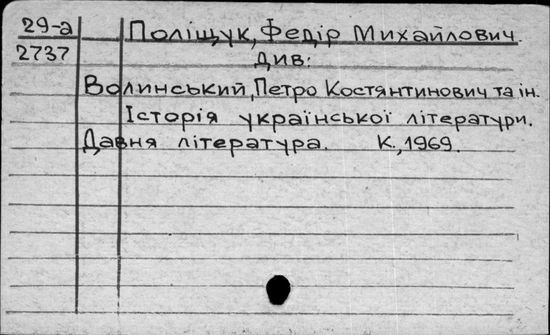 29-а Поліщук, Федір Михайлович.
2737 див:
Волинський, Петро Костянтинович та ін.
Історія української літератури.
Давня література. К., 1969.